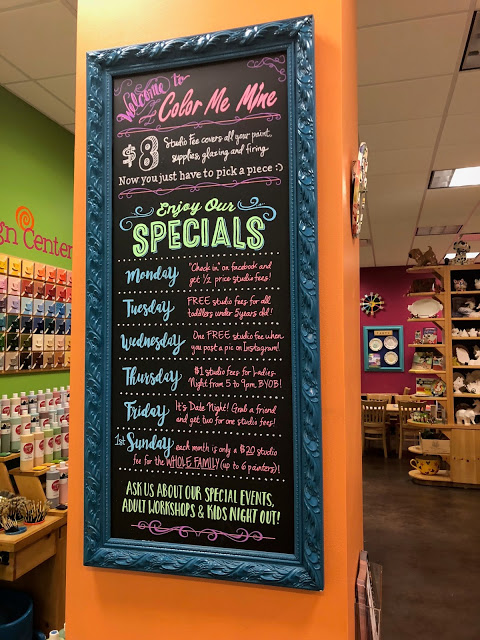 Welcome to
Color Me Mine
$8 Studio Fee covers all your paint,
supplies, glazing and firing
Now you just have to pick a piece :)
Enjoy Our
SPECIALS
Monday "Check in" on facebook and
get 1/2 price studio fees!
Tuesday FREE studio fees for all
toddlers under 5 years old!
Wednesday One FREE studio fee when
you post a pic on Instagram!
Thursday $1 studio fees for Ladies
Night from 5 to 9pm. BYOB!
Friday It's Date Night! Grab a friend
and get two for one studio fees!
1st Sunday each month is only a $20 studio
fee for the WHOLE FAMILY (up to 6 painters)!
ASK US ABOUT OUR SPECIAL EVENTS,
ADULT WORKSHOPS & KIDS NIGHT OUT!
gn Center